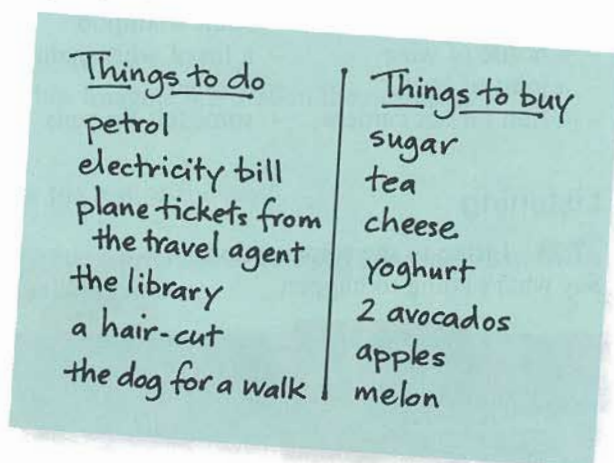 Things to do
petrol
electricity bill
plane tickets from
the travel agent
the library
a hair-cut
the dog for a walk
Things to buy
sugar
tea
cheese
yoghurt
2 avocados
apples
melon